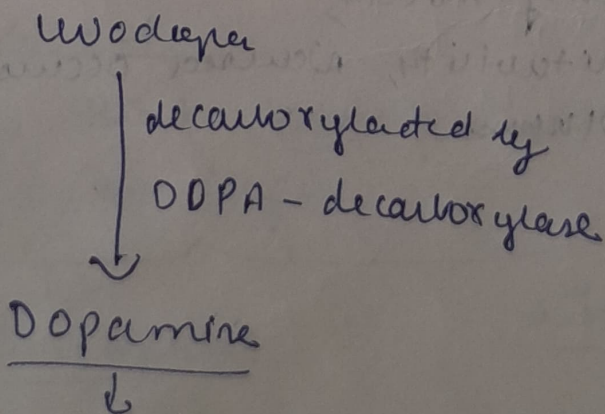 levodopa
decarboxylated by
DOPA - decarboxylase
Dopamine